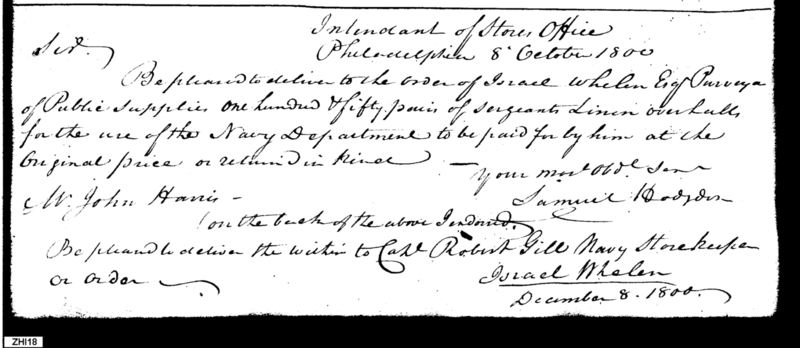 Intendant of Stores Office
Philadelphia 8 October 1800
Sir.
Be pleased to deliver to the order of Israel Whelen Esq Purveyo
of Public Supplies One hundred & fifty pairs of sergeants Linen overhalls
for the use of the Navy Department to be paid for by him at the
Original price or return'd in kind —
Your most Obd. Ser
Mr. John Harris — Samuel Hodgdon
(on the back of the above Indorsed.)
Be pleased to deliver the within to Capt. Robert Gill Navy Storekeeper
or order
Israel Whelen
December 8. 1800.
ZHI18